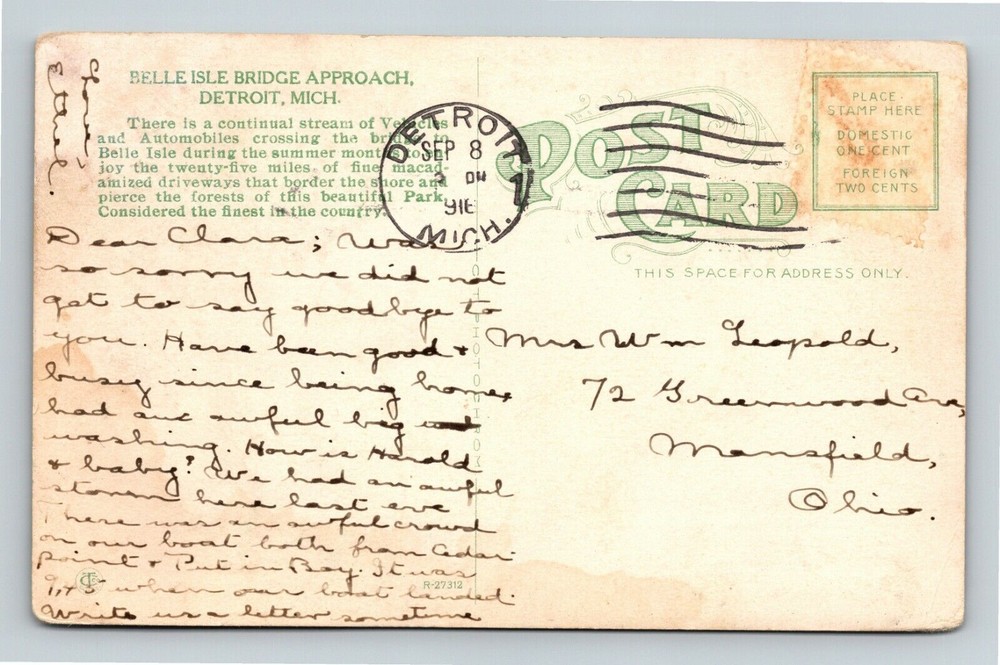 BELLE ISLE BRIDGE APPROACH,
DETROIT, MICH.
There is a continual stream of Vehicles
and Automobiles crossing the bridge to
Belle Isle during the summer months to en-
joy the twenty-five miles of fine macad-
amized driveways that border the shore and
pierce the forests of this beautiful Park.
Considered the finest in the country.
Love
Ethel.
Dear Clara; Was
so sorry we did not
get to say goodbye to
you. Have been good &
busy since being home,
had an awful big
washing. How is Harold
& baby? We had an awful
storm here last eve
There was an awful crowd
on our boat both from Cedar
point & Put in Bay. It was
when our boat landed.
Write us a letter sometime
R-27312
DETROIT
SEP 8
PM
1
MICH.
POST
CARD
PLACE
STAMP HERE
DOMESTIC
ONE CENT
FOREIGN
TWO CENTS
THIS SPACE FOR ADDRESS ONLY.
Mrs Wm Leopold,
72 Greenwood Ave,
Mansfield,
Ohio.